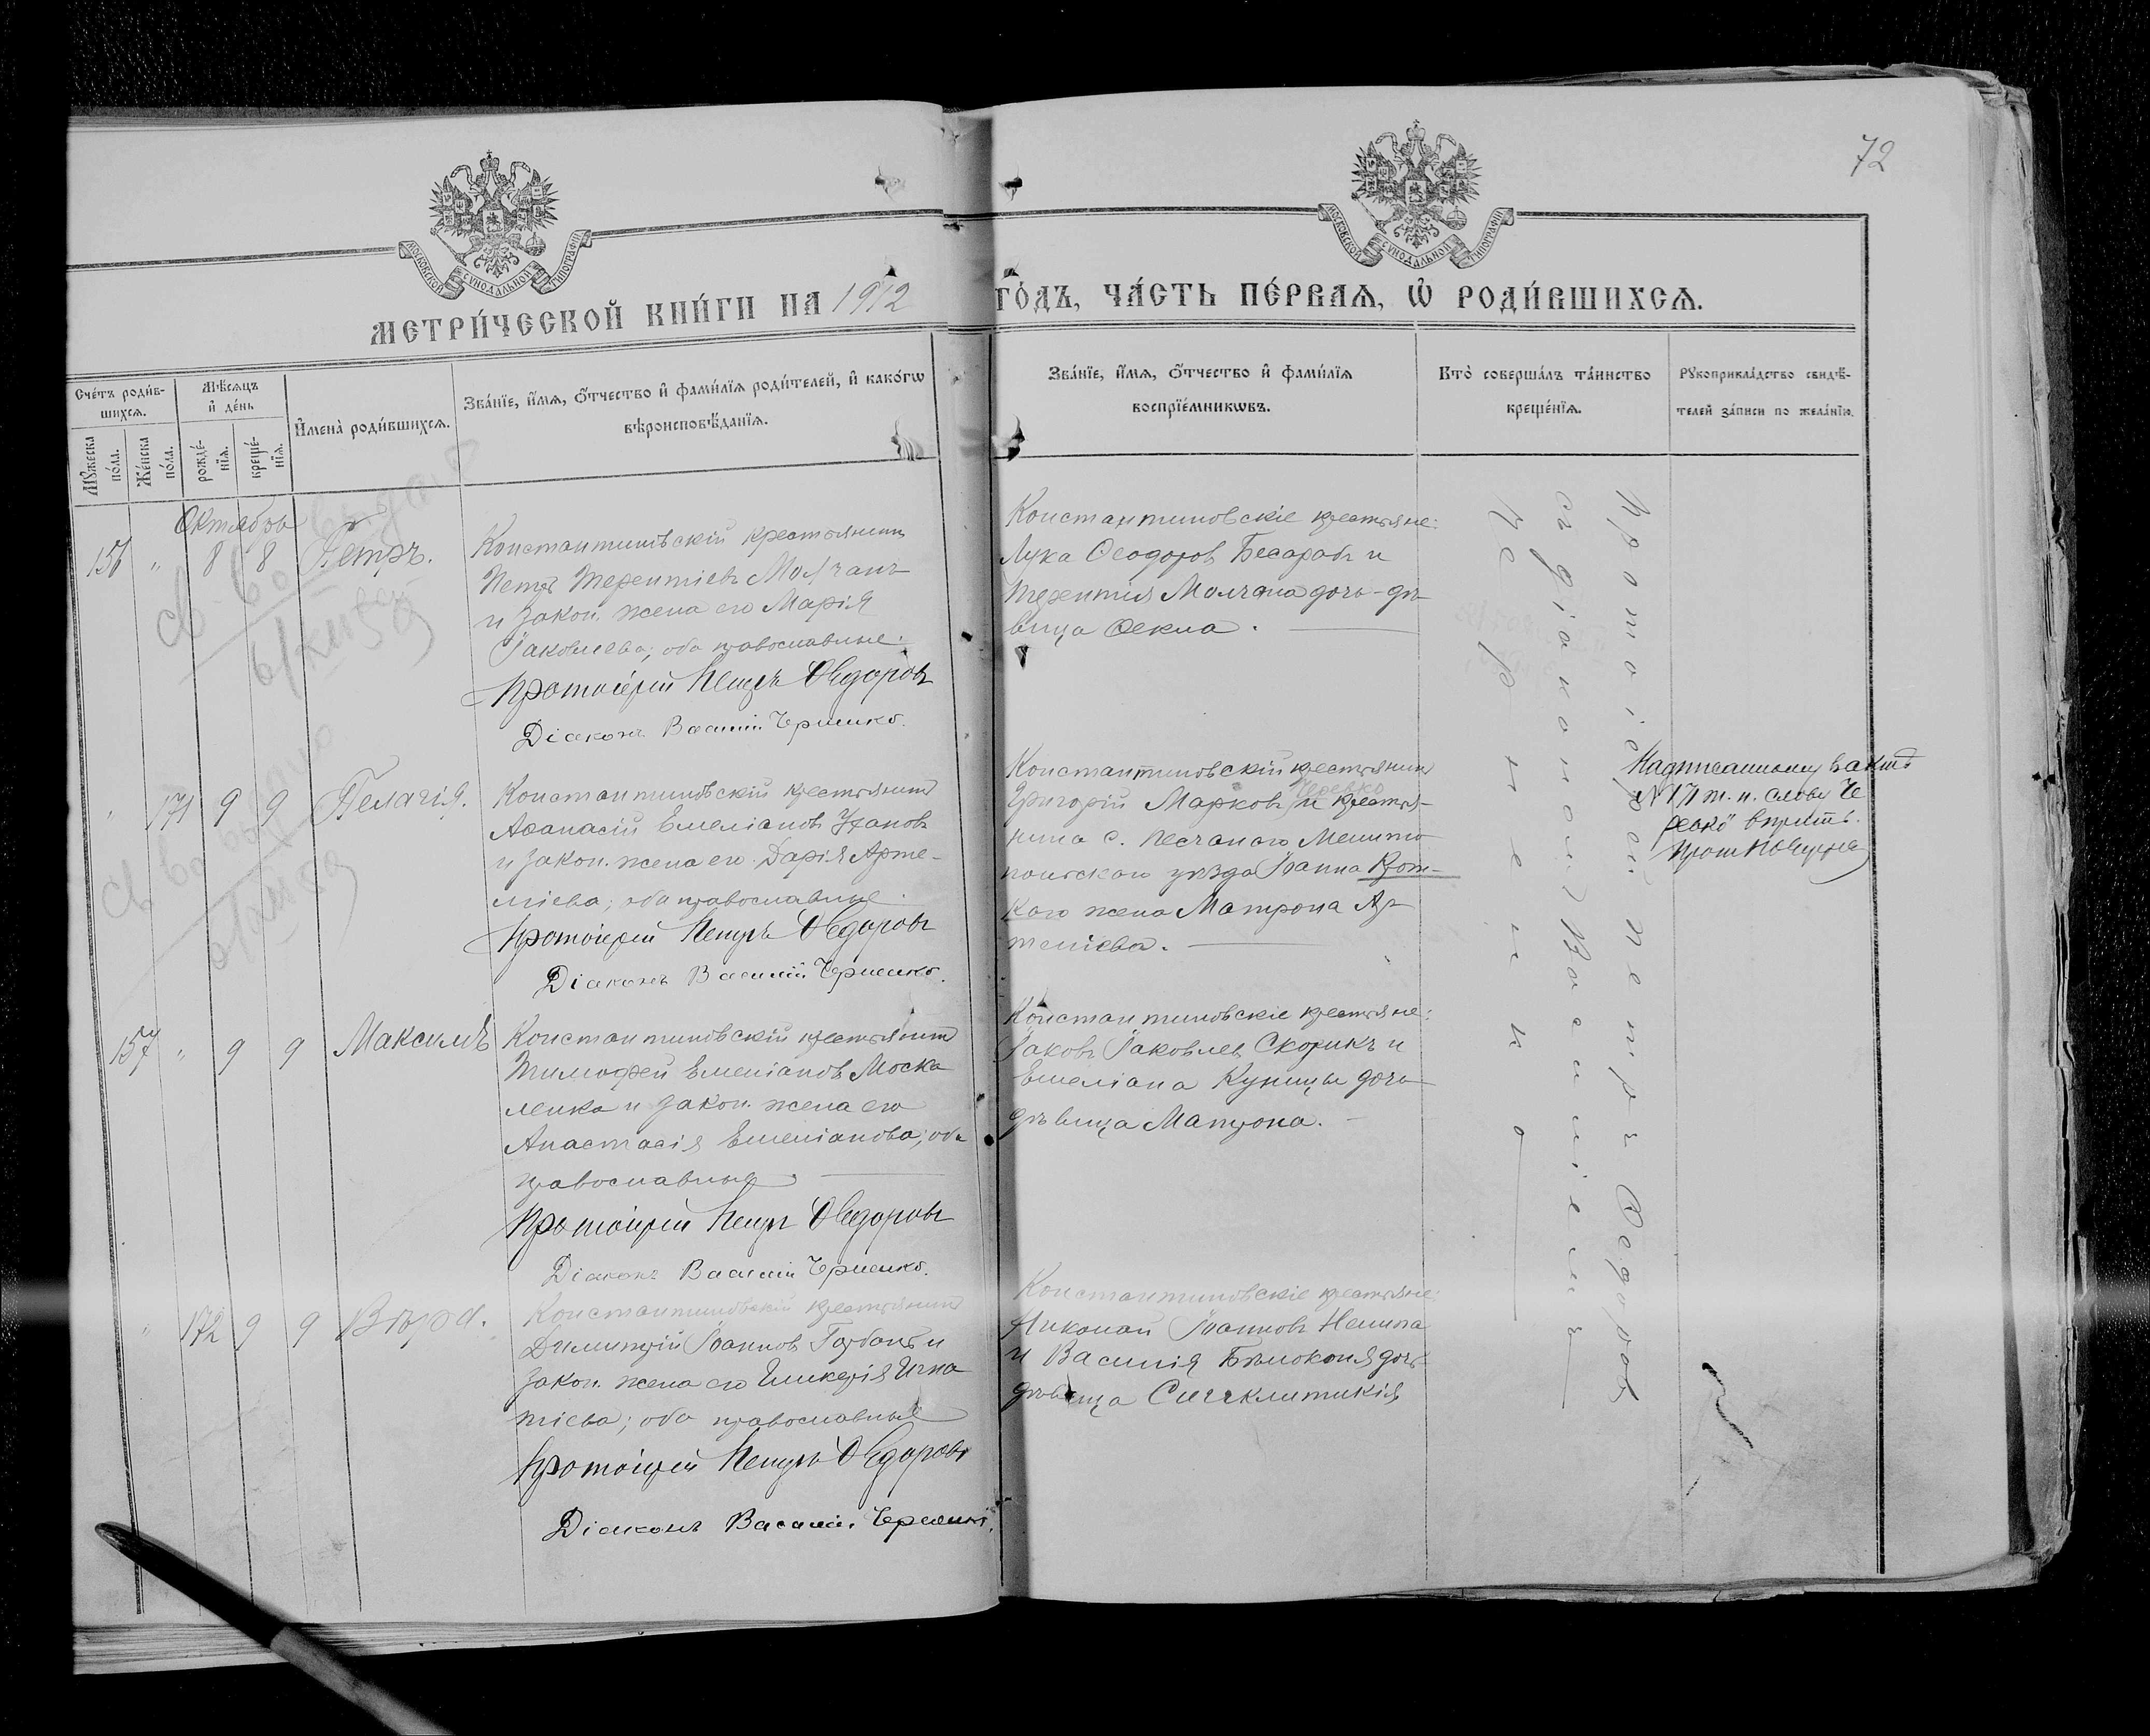 72
МОСКОВСКОЙ СѴНОДАЛЬНОЙ ТИПОГРАФІИ
МОСКОВСКОЙ СѴНОДАЛЬНОЙ ТИПОГРАФІИ
МЕТРИ́ЧЕСКОЙ КНИ́ГИ НА 1912 ГО́ДЪ, ЧА́СТЬ ПЕ́РВАѦ, Ѡ҆ РОДИ́ВШИХСѦ.
Сче́тъ роди́в-
шихсѧ.
Мꙋ́жеска
по́ла.
Же́нска
по́ла.
Мѣ́сѧцъ
и҆ де́нь
рожде́-
нїѧ.
креще́-
нїѧ.
И҆мена̀ роди́вшихсѧ.
Зва́нїе, и҆́мѧ, ѻ҆́тчество и҆ фамилїѧ роди́телей, и҆ како́гѡ
вѣроисповѣ́данїѧ.
Зва́нїе, и҆́мѧ, ѻ҆́тчество и҆ фами́лїѧ
воспрїе́мникѡвъ.
Кто̀ соверша́лъ та́инство
креще́нїѧ.
Рꙋкоприкла́дство свидѣ́-
телей за́писи по жела́нїю.
Октябрь
156 " 8 8 Петръ.
Константиновскій крестьянинъ
Петръ Терентіевъ Молчанъ
и закон. жена его Марія
Іаковлева; оба православные.
Протоіерей Петръ Ѳедоровъ
Діаконъ Василій Черненко.
Константиновскіе крестьяне:
Лука Ѳеодоровъ Бесарабъ и
Терентія Молчана дочь-дѣ-
вица Ѳекла.
" 171 9 9 Пелагія.
Константиновскій крестьянинъ
Аѳанасій Емеліановъ
и закон. жена его Дарія Арте-
міева; оба православные.
Протоіерей Петръ Ѳедоровъ
Діаконъ Василій Черненко.
Константиновскій крестьянинъ
Черевко
Григорій Марковъ и крестья-
нина с. Песчанаго Мелито-
польскаго уѣзда Іоанна Крот-
каго жена Матрона Ар-
теміева.
Надписанному въ актѣ
N 171 ж. п. слову Че
ревко вѣрить.
157 " 9 9 Максимъ
Константиновскій крестьянинъ
Тимофей Емеліановъ Моска
ленко и закон. жена его
Анастасія Емеліанова; оба
православные
Протоіерей Петръ Ѳедоровъ
Діаконъ Василій Черненко.
Константиновскіе крестьяне:
Іаковъ Іаковлевъ Скорикъ и
Емеліана Куницы дочь-
дѣвица Матрона.
" 172 9 9 Вѣра.
Константиновскій крестьянинъ
Димитрій Іоанновъ Горбань и
закон. жена его Гликерія Игна
тіева; оба православные
Протоіерей Петръ Ѳедоровъ
Діаконъ Василій Черненко.
Константиновскіе крестьяне:
Николай Іоанновъ
и Василія Бѣлоконя дочь-
дѣвица Сигклитикія
Протоіерей Петръ Ѳедоровъ
съ діакономъ Василіемъ
Черненко